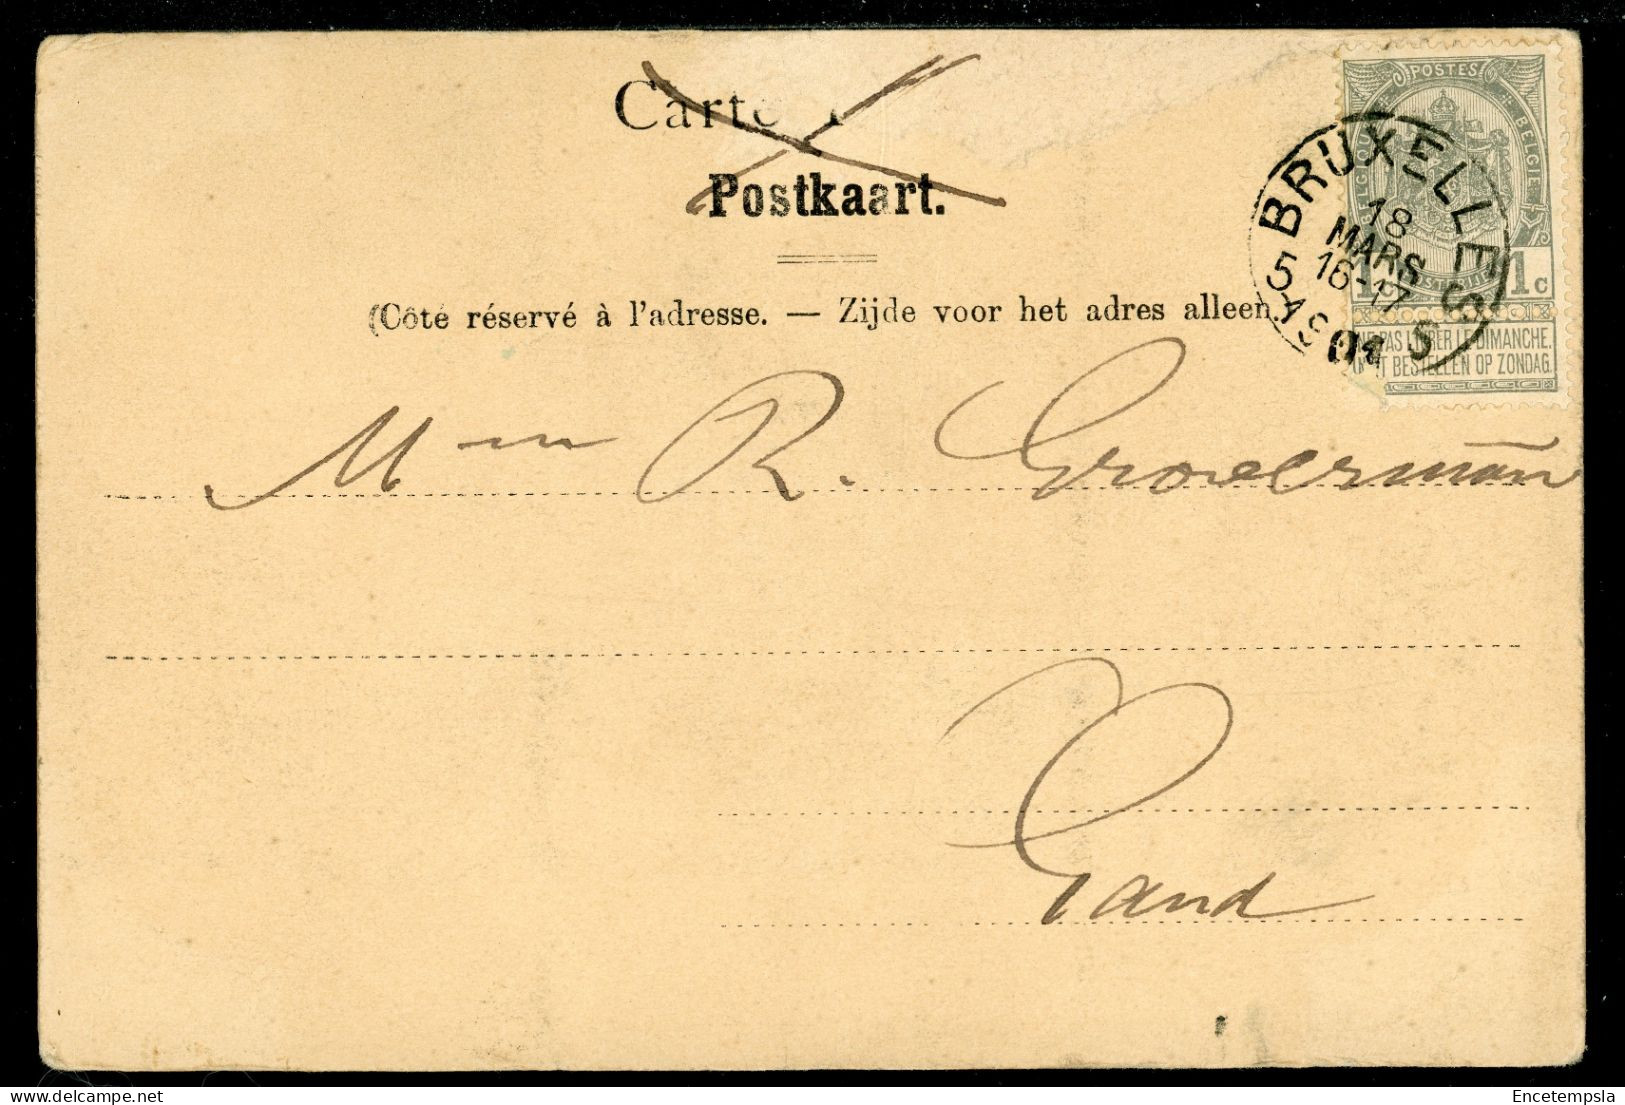 Carte
Postkaart.
(Côté réservé à l'adresse. — Zijde voor het adres alleen.)
POSTES
BELGIQUE BELGIE
1 1c
NE PAS LIVRER LE DIMANCHE.
NIET BESTELLEN OP ZONDAG.
BRUXELLES 5
18
MARS
16-17
1901
5
Mme R. Groverman
Gand
Encetempsla